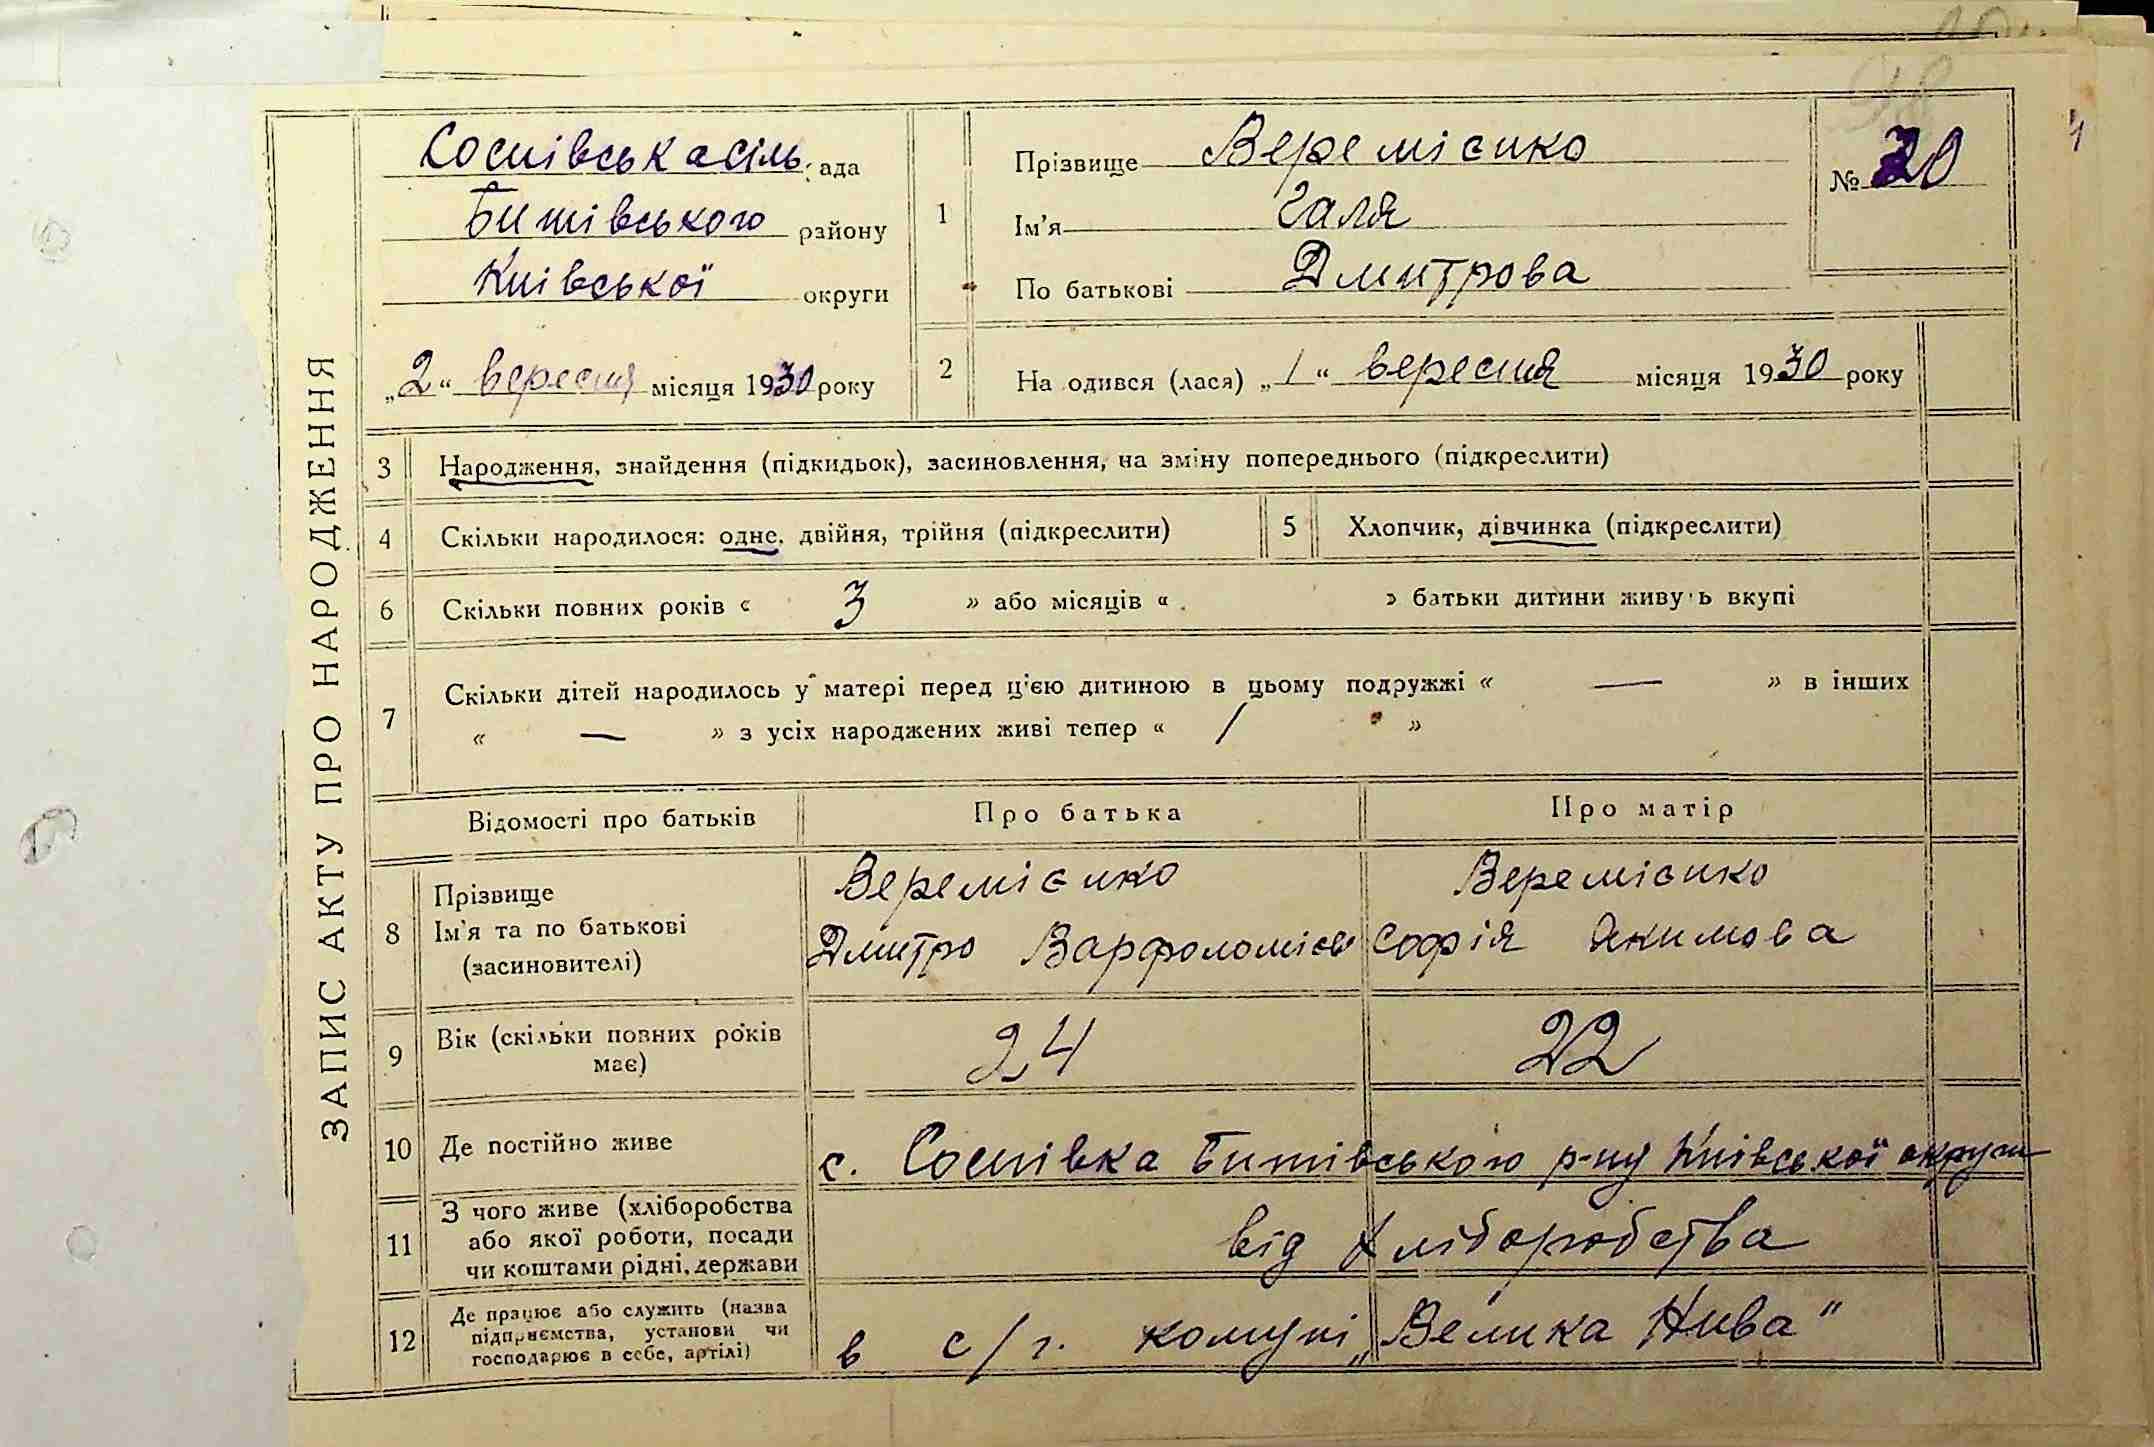 ЗАПИС АКТУ ПРО НАРОДЖЕННЯ
Соснівська сіль. ада
Бишівського району
Київської округи
„2“ вересня місяця 1930 року
1
Прізвище Веремієнко
Ім'я Галя
По батькові Дмитрова
№ 20
2
На одився (лася) „1“ вересня місяця 1930 року
3 Народження, знайдення (підкидьок), засиновлення, на зміну попереднього (підкреслити)
4 Скільки народилося: одне, двійня, трійня (підкреслити)
5 Хлопчик, дівчинка (підкреслити)
6 Скільки повних років « 3 » або місяців « » батьки дитини живуть вкупі
7 Скільки дітей народилось у матері перед цією дитиною в цьому подружжі « — » в інших
« — » з усіх народжених живі тепер « 1 »
Відомості про батьків Про батька Про матір
8 Прізвище
Ім'я та по батькові
(засиновителі)
Веремієнко
Дмитро Варфоломієв
Веремієнко
Софія Якимова
9 Вік (скільки повних років
має)
24
22
10 Де постійно живе
с. Соснівка Бишівського р-ну Київської округи
11 З чого живе (хліборобства
або якої роботи, посади
чи коштами рідні, держави
від хліборобства
12 Де працює або служить (назва
підприємства, установи чи
господарює в себе, артілі)
в с/г. комуні „Велика Нива"